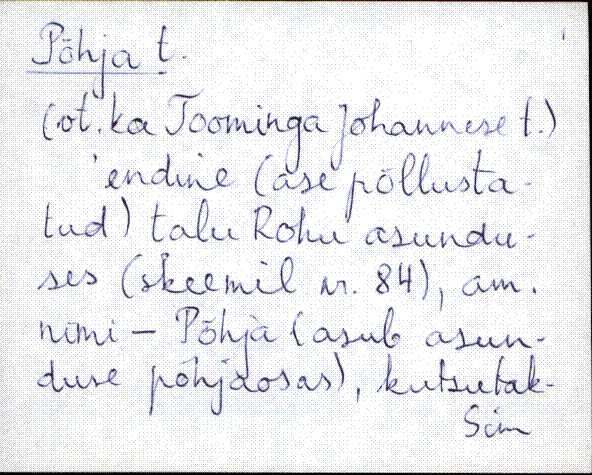 Põhja t.
(ot. ka Toominga Johannese t.)
'endine (ase põllusta-
tud) talu Rohu asundu-
ses (skeemil nr. 84), am.
nimi – Põhja (asub asun-
duse põhjaosas), kutsutak-
Sim